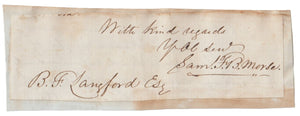 With kind regards
Yr Ob Serv
Sam. F. B. Morse.
B. F. Langford Esq